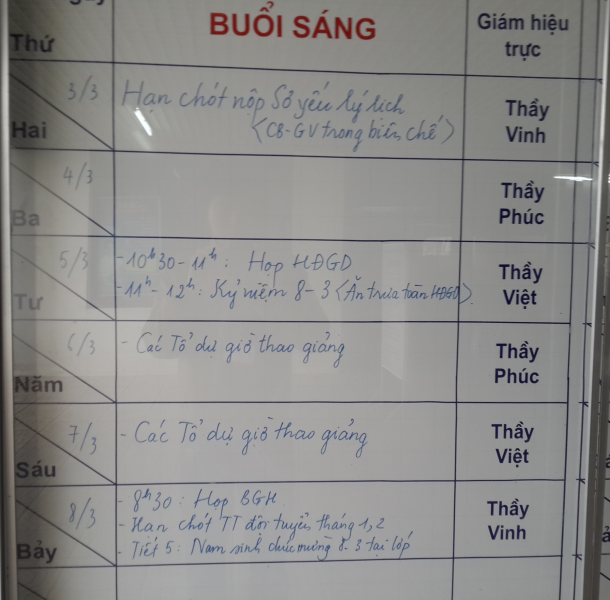 BUỔI SÁNG
Giám hiệu
trực
Thứ
3/3
Hai
Hạn chót nộp Sơ yếu lý lịch
<CB-GV trong biên chế>
Thầy
Vinh
4/3
Ba
Thầy
Phúc
5/3
Tư
-10h30-11h: Họp HĐGD
-11h-12h: Kỷ niệm 8-3 <Ăn trưa toàn HĐGD>
Thầy
Việt
6/3
Năm
- Các Tổ dự giờ thao giảng
Thầy
Phúc
7/3
Sáu
- Các Tổ dự giờ thao giảng
Thầy
Việt
8/3
Bảy
- 8h30: Họp BGH
- Hạn chót TT đội tuyển tháng 1,2
- Tiết 5: Nam sinh chúc mừng 8-3 tại lớp
Thầy
Vinh